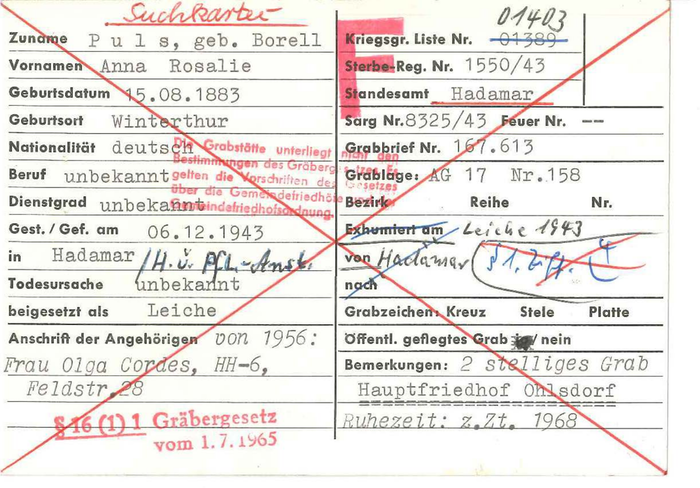 Suchkartei
Zuname Puls, geb. Borell
Vornamen Anna Rosalie
Geburtsdatum 15.08.1883
Geburtsort Winterthur
Nationalität deutsch
Beruf unbekannt
Dienstgrad unbekannt
Gest./Gef. am 06.12.1943
in Hadamar /H.u.Pfl.-Anst.
Todesursache unbekannt
beigesetzt als Leiche
Anschrift der Angehörigen von 1956:
Frau Olga Cordes, HH-6,
Feldstr.28
§ 16 (1) 1 Gräbergesetz
vom 1.7.1965
Die Grabstätte unterliegt nicht den
Bestimmungen des Gräbergesetzes. Es
gelten die Vorschriften des Gesetzes
über die Gemeindefriedhöfe
Gemeindefriedhofsordnung.
F
01403
Kriegsgr. Liste Nr. 01389
Sterbe-Reg. Nr. 1550/43
Standesamt Hadamar
Sarg Nr. 8325/43 Feuer Nr. --
Grabbrief Nr. 167.613
Grablage: AG 17 Nr.158
Bezirk Reihe Nr.
Exhumiert am Leiche 1943
von Hadamar § 1, Ziff. 4
nach
Grabzeichen: Kreuz Stele Platte
Öffentl. gepflegtes Grab / nein
Bemerkungen: 2 stelliges Grab
Hauptfriedhof Ohlsdorf
Ruhezeit: z.Zt. 1968